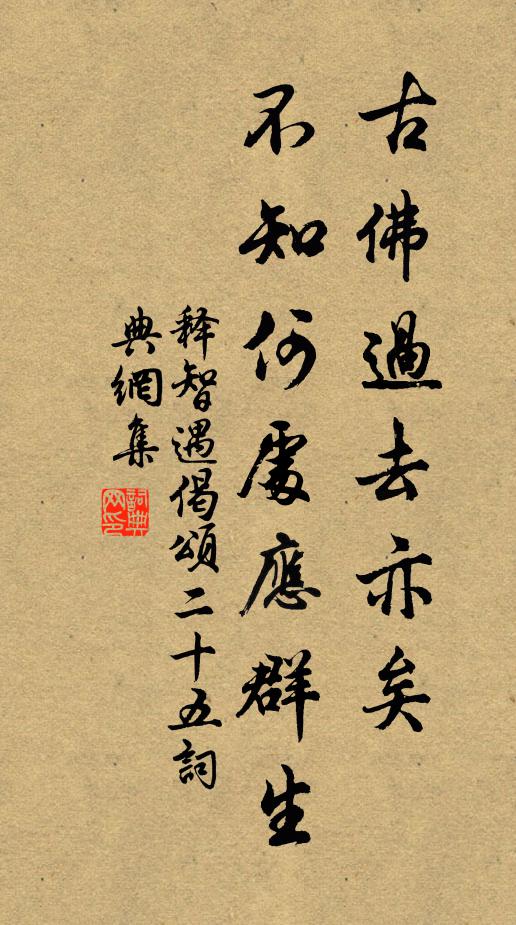 古佛過去亦矣
不知何處應群生
释智遇偈頌二十五詞
典網集
詞典網印